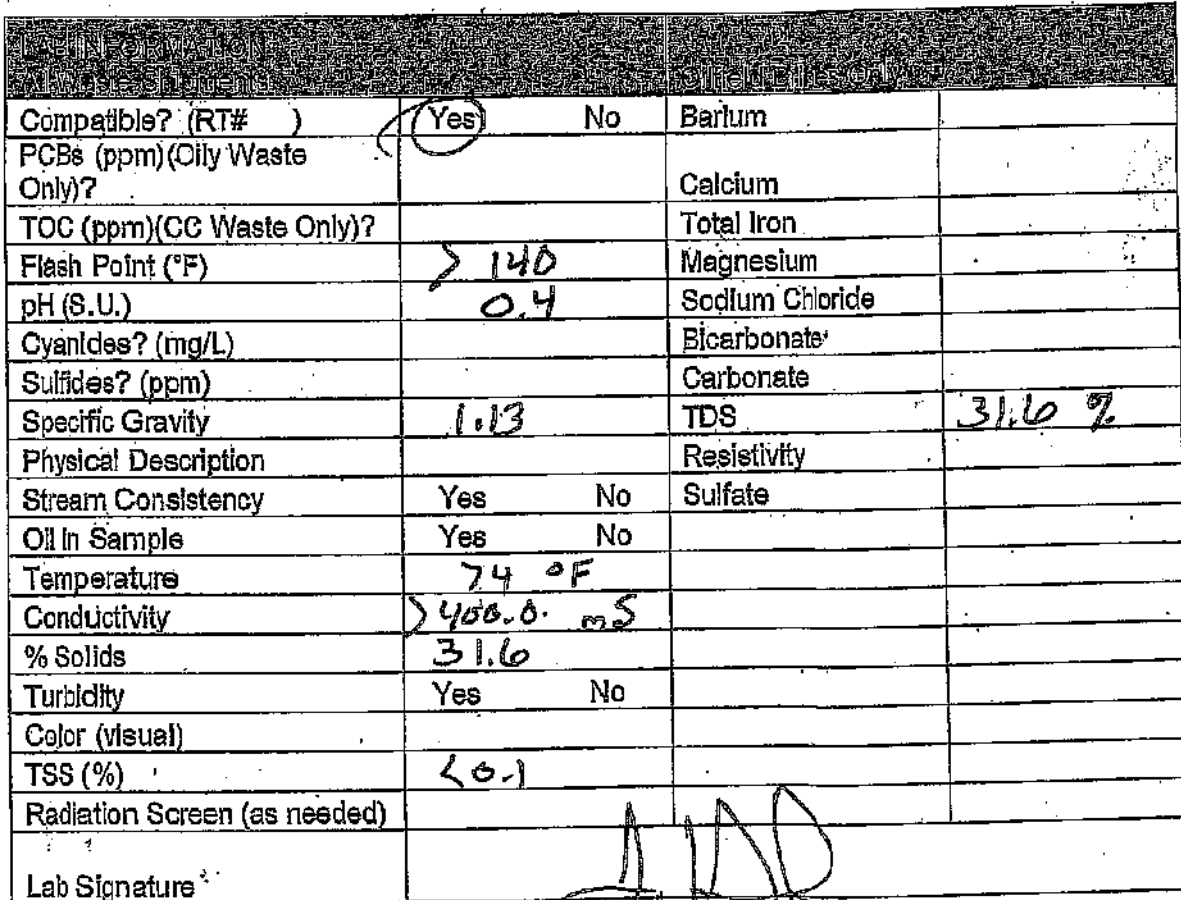 LAB INFORMATION
All Waste Shipments
Oilfield Brines Only
Compatible? (RT# ) Yes No Barium
PCBs (ppm)(Oily Waste
Only)? Calcium
TOC (ppm)(CC Waste Only)? Total Iron
Flash Point (°F) > 140 Magnesium
pH (S.U.) 0.4 Sodium Chloride
Cyanides? (mg/L) Bicarbonate
Sulfides? (ppm) Carbonate
Specific Gravity 1.13 TDS 31.6 %
Physical Description Resistivity
Stream Consistency Yes No Sulfate
Oil in Sample Yes No
Temperature 74 °F
Conductivity >400.0 mS
% Solids 31.6
Turbidity Yes No
Color (visual)
TSS (%) <0.1
Radiation Screen (as needed)
Lab Signature